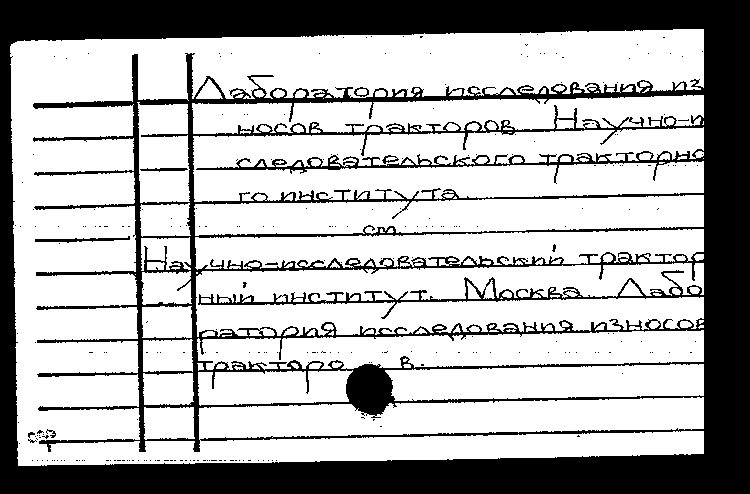 Лаборатория исследования из
носов тракторов Научно-и
следовательского тракторно
го института
см.
Научно-исследовательский трактор
ный институт. Москва. Лабо
ратория исследования износов
тракторо в.